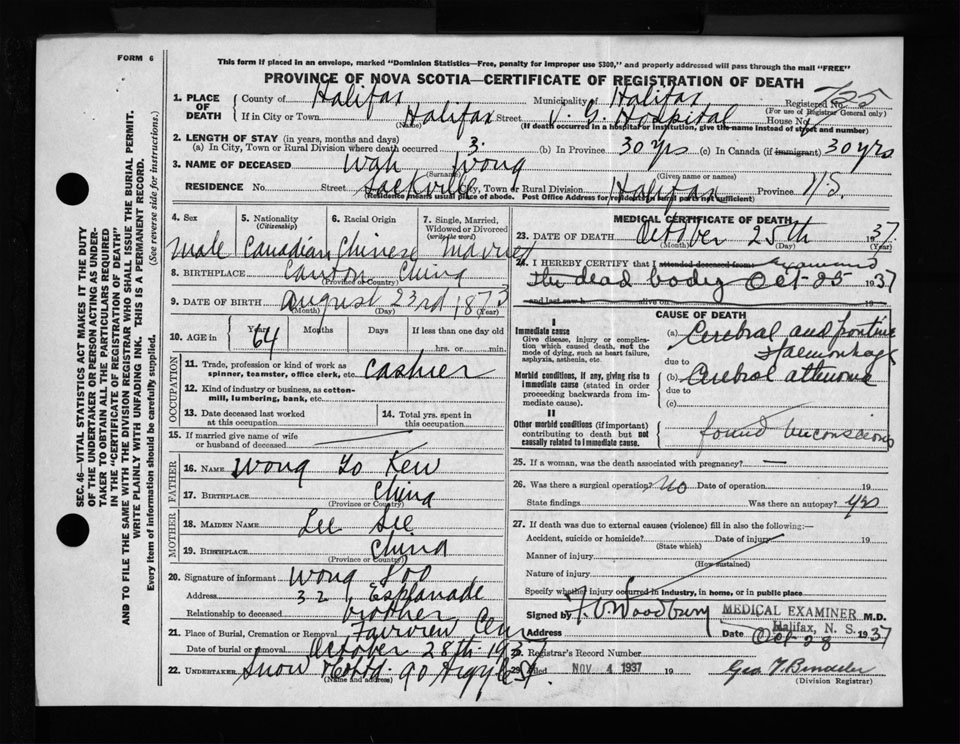 FORM 6
This form if placed in an envelope, marked "Dominion Statistics—Free, penalty for improper use $300," and properly addressed will pass through the mail "FREE"
PROVINCE OF NOVA SCOTIA—CERTIFICATE OF REGISTRATION OF DEATH
1. PLACE OF DEATH { County of Halifax Municipality of Halifax Registered No. 725
(For use of Registrar General only)
If in City or Town Halifax Street V. G. Hospital House No.
(Name) (If death occurred in a hospital or institution, give the name instead of street and number)
2. LENGTH OF STAY (in years, months and days)
(a) In City, Town or Rural Division where death occurred 3. (b) In Province 30 yrs (c) In Canada (if immigrant) 30 yrs.
3. NAME OF DECEASED Wah Wong
(Surname) (Given name or names)
RESIDENCE No. Street Sackville City, Town or Rural Division Halifax Province N.S.
(Residence means usual place of abode. Post Office Address for residents in rural parts not sufficient)
4. Sex 5. Nationality (Citizenship) 6. Racial Origin 7. Single, Married, Widowed or Divorced (write the word)
male Canadian Chinese married
8. BIRTHPLACE Canton China
(Province or Country)
9. DATE OF BIRTH August 23rd 1873
(Month) (Day) (Year)
10. AGE in Years Months Days If less than one day old
64 hrs. or min.
OCCUPATION
11. Trade, profession or kind of work as spinner, teamster, office clerk, etc. cashier
12. Kind of industry or business, as cotton-mill, lumbering, bank, etc.
13. Date deceased last worked at this occupation
14. Total yrs. spent in this occupation
15. If married give name of wife or husband of deceased
FATHER
16. NAME Wong Yo Kew
17. BIRTHPLACE China
(Province or Country)
MOTHER
18. MAIDEN NAME Lee See
19. BIRTHPLACE China
(Province or Country)
20. Signature of informant Wong Soo
Address 32 Esplanade
Relationship to deceased brother
21. Place of Burial, Cremation or Removal Fairview Cem
Date of burial or removal October 28th 193
22. UNDERTAKER Snow 90 Argyle St.
(Name and address)
MEDICAL CERTIFICATE OF DEATH
23. DATE OF DEATH October 25th 1937
(Month) (Day) (Year)
24. I HEREBY CERTIFY that I attended deceased from examined
the dead body Oct-25 1937
and last saw h alive on 19
CAUSE OF DEATH
I
Immediate cause
Give disease, injury or complication which caused death, not the mode of dying, such as heart failure, asphyxia, asthenia, etc.
(a) Cerebral and pontine Haemorrhage
due to
Morbid conditions, if any, giving rise to immediate cause (stated in order proceeding backwards from immediate cause).
(b) Cerebral atheroma
due to
(c)
II
Other morbid conditions (if important) contributing to death but not causally related to immediate cause.
found unconscious
25. If a woman, was the death associated with pregnancy? —
26. Was there a surgical operation? No Date of operation 19
State findings Was there an autopsy? yes
27. If death was due to external causes (violence) fill in also the following:—
Accident, suicide or homicide? Date of injury 19
(State which)
Manner of injury
(How sustained)
Nature of injury
Specify whether injury occurred in industry, in home, or in public place
Signed by Woodbury MEDICAL EXAMINER M.D.
Halifax, N. S.
Address Date Oct-28 1937
28. Registrar's Record Number
29. Filed NOV 4 1937 19 Geo
(Division Registrar)
SEC. 46—VITAL STATISTICS ACT MAKES IT THE DUTY OF THE UNDERTAKER OR PERSON ACTING AS UNDERTAKER TO OBTAIN ALL THE PARTICULARS REQUIRED IN THE "CERTIFICATE OF REGISTRATION OF DEATH"
AND TO FILE THE SAME WITH THE DIVISION REGISTRAR WHO SHALL ISSUE THE BURIAL PERMIT.
WRITE PLAINLY WITH UNFADING INK. THIS IS A PERMANENT RECORD.
Every item of information should be carefully supplied. (See reverse side for instructions.)